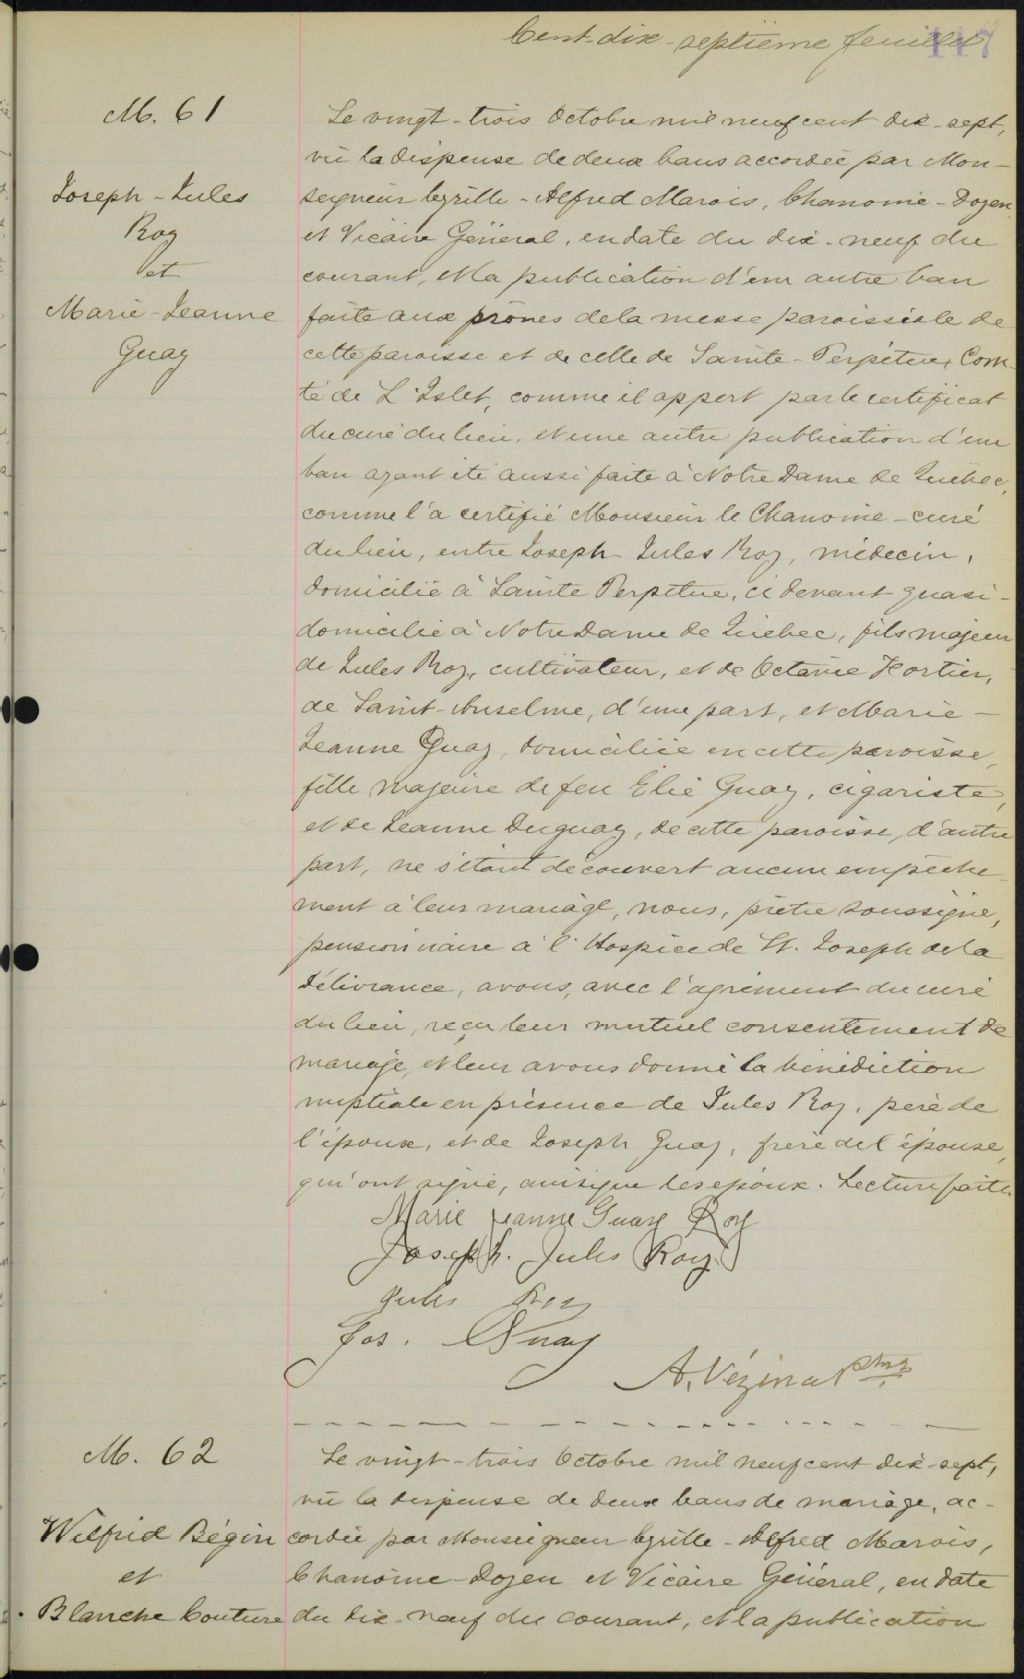 Cent-dix-septième feuillet
117
M. 61
Joseph-Jules
Roy
et
Marie-Jeanne
Guay
Le vingt-trois Octobre mil neuf cent dix-sept,
vu la dispense de deux bans accordée par Mon-
seigneur Cyrille-Alfred Marois, Chanoine-Doyen
et Vicaire Général, en date du dix-neuf du
courant, et la publication d'un autre ban
faite aux prônes de la messe paroissiale de
cette paroisse et de celle de Sainte-Perpétue, Com-
té de L'Islet, comme il appert par le certificat
du curé du lieu, et une autre publication d'un
ban ayant été aussi faite à Notre Dame de Québec,
comme l'a certifié Monsieur le Chanoine-curé
du lieu, entre Joseph-Jules Roy, médecin,
domicilié à Sainte Perpétue, ci devant quasi-
domicilié à Notre Dame de Québec, fils majeur
de Jules Roy, cultivateur, et de Octavie Fortier,
de Saint-Anselme, d'une part, et Marie-
Jeanne Guay, domiciliée en cette paroisse,
fille majeure de feu Elie Guay, cigariste,
et de Jeanne Duguay, de cette paroisse, d'autre
part, ne s'étant découvert aucun empêche-
ment à leur mariage, nous, prêtre soussigné,
pensionnaire à l'Hospice de St. Joseph de la
Délivrance, avons, avec l'agrément du curé
du lieu, reçu leur mutuel consentement de
mariage, et leur avons donné la bénédiction
nuptiale en présence de Jules Roy, père de
l'époux, et de Joseph Guay, frère de l'épouse,
qui ont signé, ainsi que les époux. Lecture faite
Marie Jeanne Guay Roy
Joseph. Jules Roy
Jules Roy
Jos. Guay
A. Vézina Ptre
M. 62
Wilfrid Bégin
et
Blanche Couture
Le vingt-trois Octobre mil neuf cent dix-sept,
vu la dispense de deux bans de mariage, ac-
cordée par Monseigneur Cyrille-Alfred Marois,
Chanoine-Doyen et Vicaire Général, en date
du dix-neuf du courant, et la publication